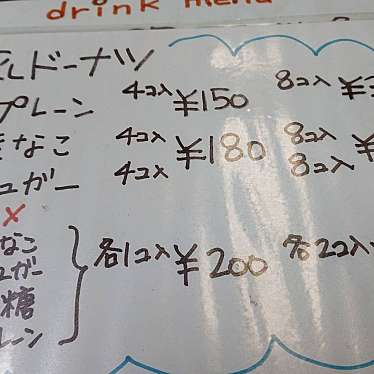 drink menu
ドーナツ
プレーン 4コ入 ¥150 8コ入 ¥
なこ 4コ入 ¥180 8コ入 ¥
ュガー 4コ入 8コ入
なこ
ュガー 各1コ入 ¥200 各2コ入
糖
レーン